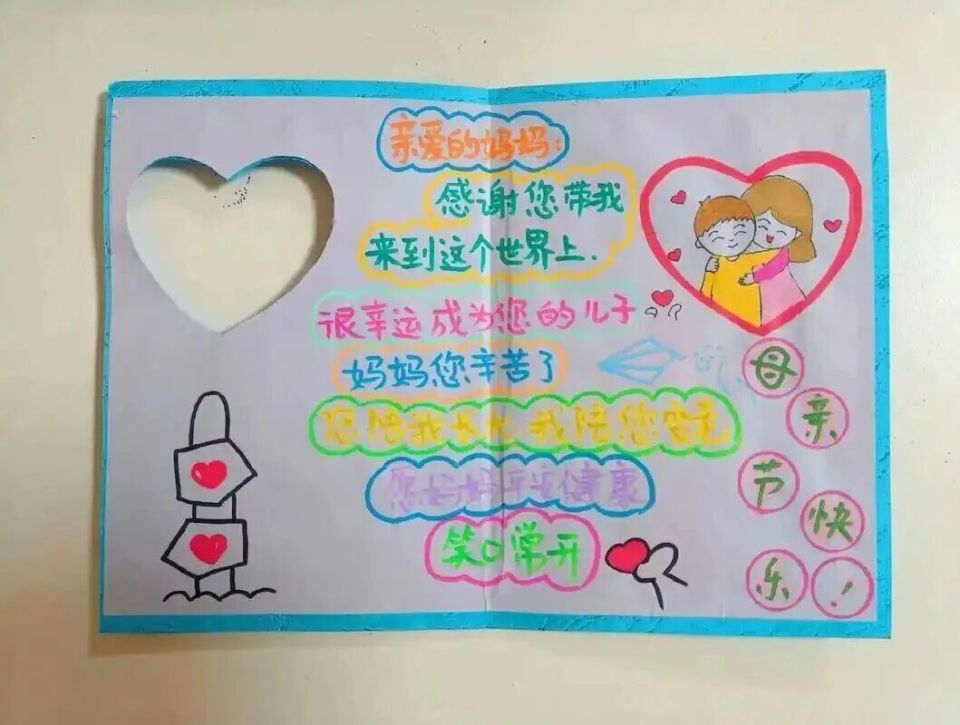 亲爱的妈妈:
感谢您带我
来到这个世界上.
很幸运成为您的儿子
妈妈您辛苦了
您陪我长大 我陪您变老
愿妈妈平安健康
笑口常开
母
亲
节
快
乐
!